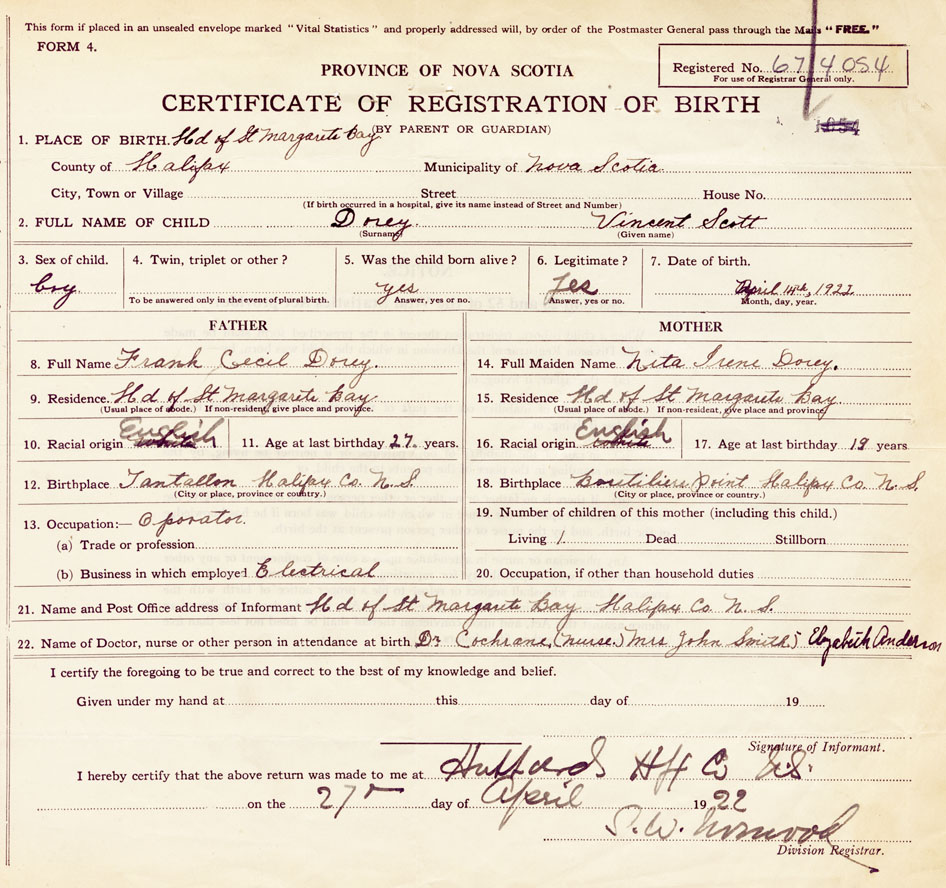 This form if placed in an unsealed envelope marked "Vital Statistics" and properly addressed will, by order of the Postmaster General pass through the Mails "FREE."
FORM 4.
Registered No. 67/4054
For use of Registrar General only.
PROVINCE OF NOVA SCOTIA
CERTIFICATE OF REGISTRATION OF BIRTH
(BY PARENT OR GUARDIAN)
1. PLACE OF BIRTH. Hd of St Margarets Bay
County of Halifax Municipality of Nova Scotia
City, Town or Village Street House No.
(If birth occurred in a hospital, give its name instead of Street and Number)
2. FULL NAME OF CHILD Dorey. Vincent Scott
(Surname) (Given name)
3. Sex of child. 4. Twin, triplet or other? 5. Was the child born alive? 6. Legitimate? 7. Date of birth.
boy yes Yes April 14th, 1922
To be answered only in the event of plural birth. Answer, yes or no. Answer, yes or no. Month, day, year.
FATHER MOTHER
8. Full Name Frank Cecil Dorey. 14. Full Maiden Name Nita Irene Dorey.
9. Residence. Hd of St Margarets Bay 15. Residence Hd of St Margarets Bay
(Usual place of abode.) If non-resident, give place and province. (Usual place of abode.) If non-resident, give place and province.
10. Racial origin English 11. Age at last birthday 27 years. 16. Racial origin English 17. Age at last birthday 19 years.
12. Birthplace Tantallon Halifax Co. N.S. 18. Birthplace Boutiliers Point Halifax Co N.S.
(City or place, province or country.) (City or place, province or country.)
13. Occupation:— Operator. 19. Number of children of this mother (including this child.)
(a) Trade or profession Living 1 Dead Stillborn
(b) Business in which employed Electrical 20. Occupation, if other than household duties
21. Name and Post Office address of Informant Hd of St Margarets Bay Halifax Co N.S.
22. Name of Doctor, nurse or other person in attendance at birth Dr Cochrane, (nurse.) Mrs John Smith) Elizabeth Anderson
I certify the foregoing to be true and correct to the best of my knowledge and belief.
Given under my hand at this day of 19
Signature of Informant.
I hereby certify that the above return was made to me at Hubbards Hfx Co N.S.
on the 27 day of April 1922
S. W.
Division Registrar.